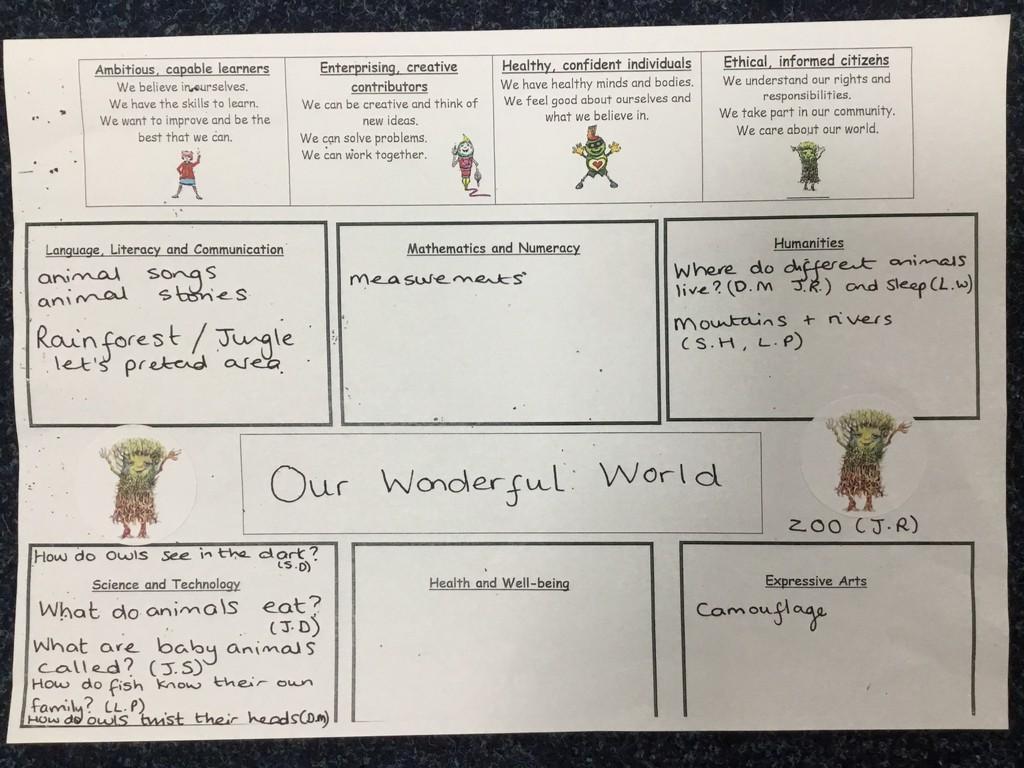 Ambitious, capable learners
We believe in ourselves.
We have the skills to learn.
We want to improve and be the
best that we can.
Enterprising, creative
contributors
We can be creative and think of
new ideas.
We can solve problems.
We can work together.
Healthy, confident individuals
We have healthy minds and bodies.
We feel good about ourselves and
what we believe in.
Ethical, informed citizens
We understand our rights and
responsibilities.
We take part in our community.
We care about our world.
Language, Literacy and Communication
animal songs
animal stories
Rainforest / Jungle
let's pretend area.
Mathematics and Numeracy
measurements
Humanities
Where do different animals
live? (D.M J.R.) and sleep (L.W)
Mountains + rivers
(S.H, L.P)
Our Wonderful World
ZOO (J.R)
How do owls see in the dark?
(S.D)
Science and Technology
What do animals eat?
(J.D)
What are baby animals
called? (J.S)
How do fish know their own
family? (L.P)
How do owls twist their heads (D.M)
Health and Well-being
Expressive Arts
Camouflage